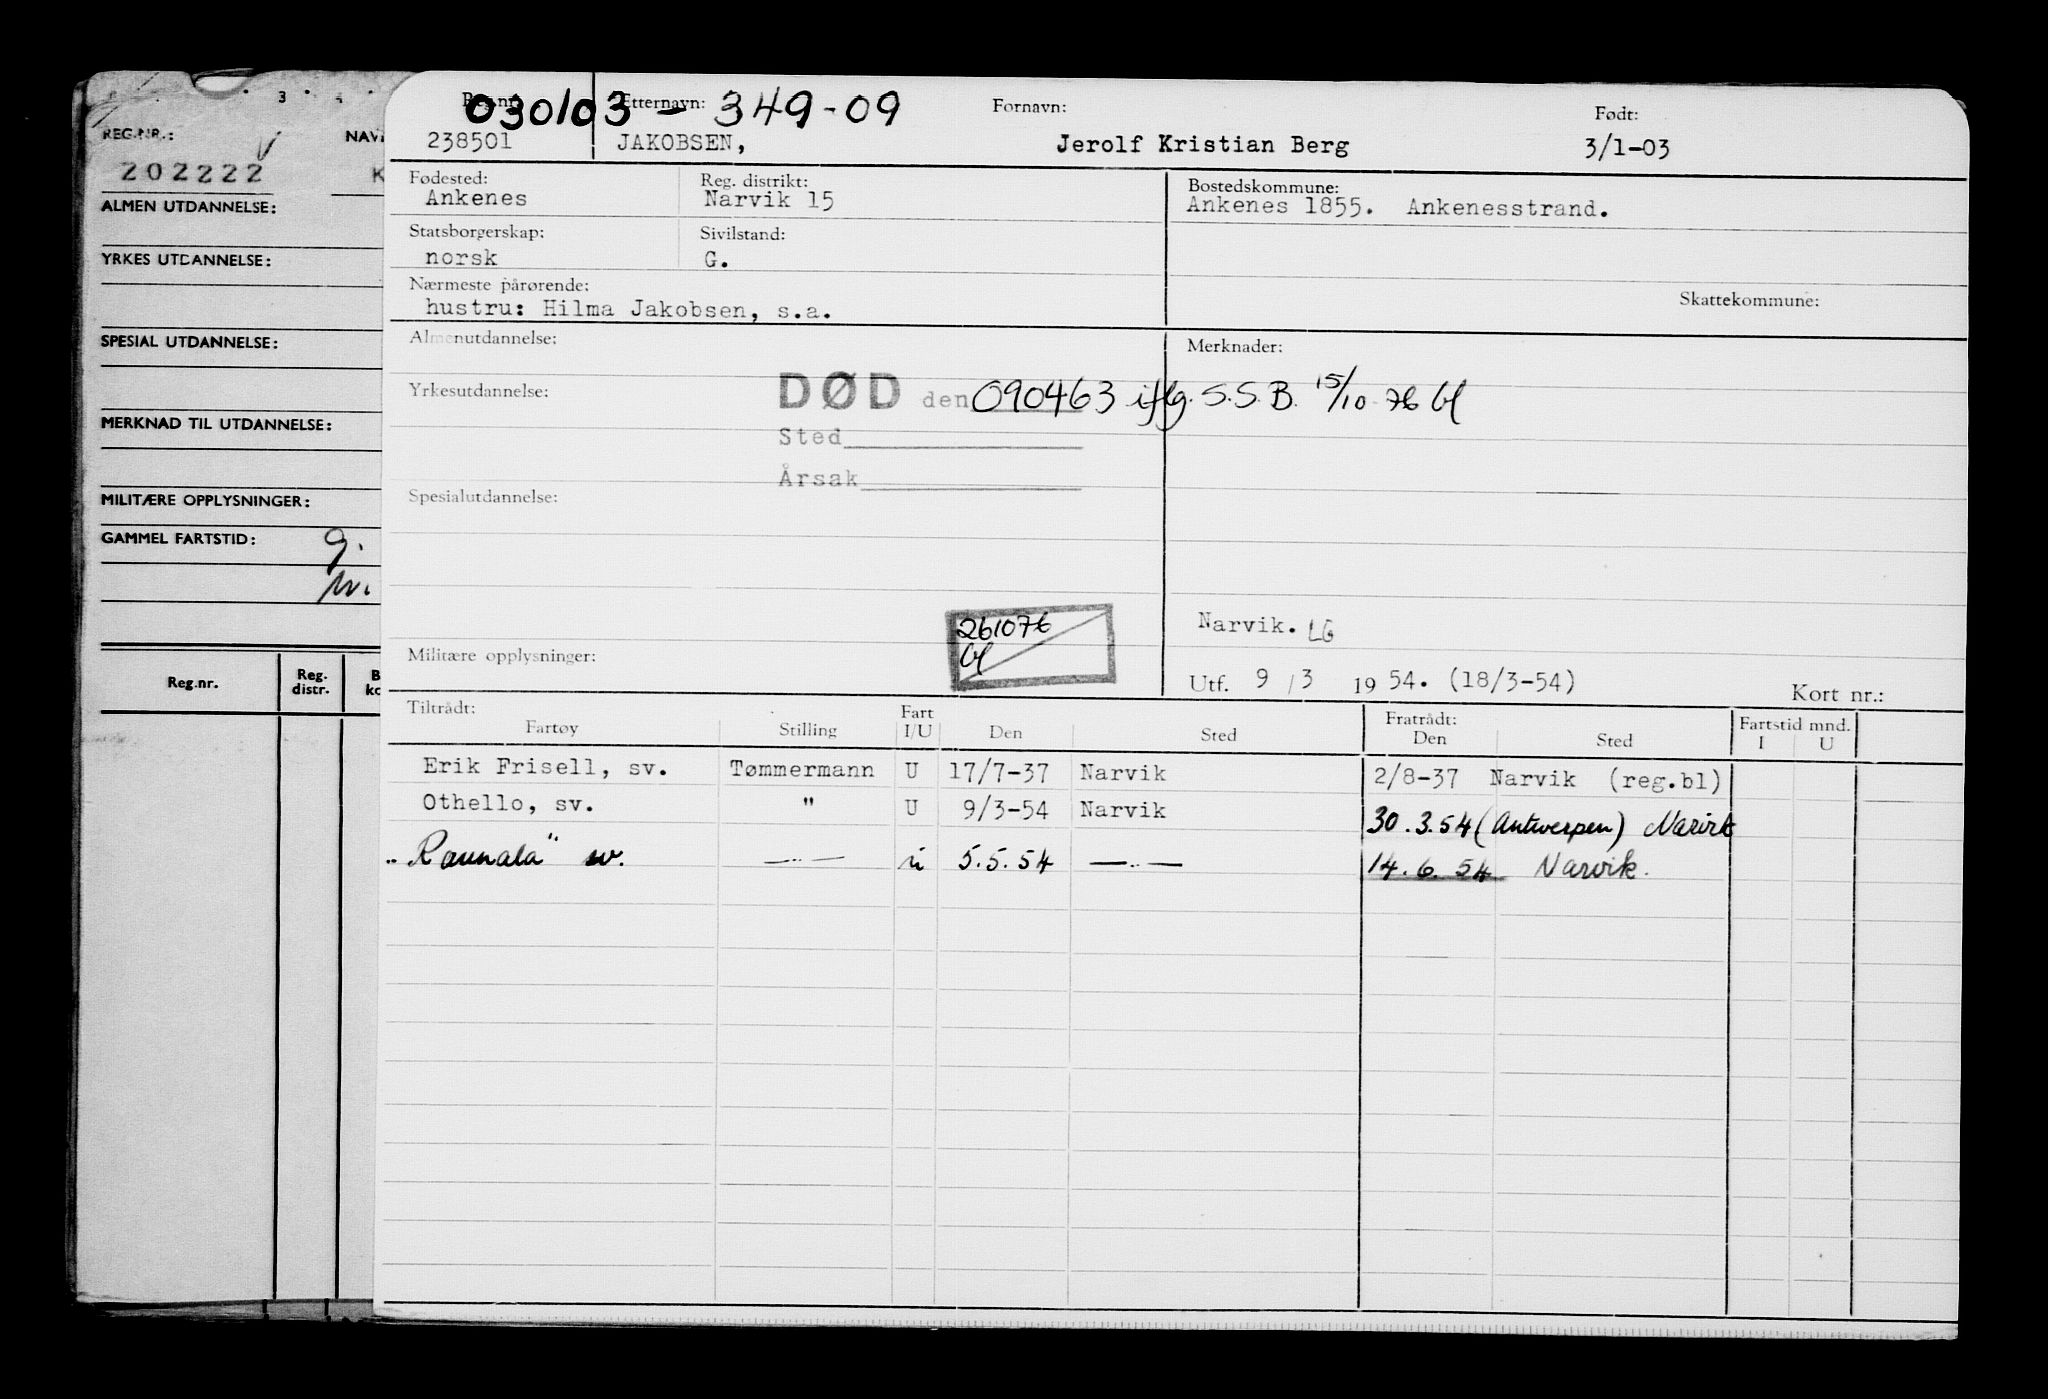 REG.-NR.:
202222
NAV
K
ALMEN UTDANNELSE:
YRKES UTDANNELSE:
SPESIAL UTDANNELSE:
MERKNAD TIL UTDANNELSE:
MILITÆRE OPPLYSNINGER:
GAMMEL FARTSTID:
Reg.nr. Reg. distr.
030103 - 349-09
Reg.nr. Etternavn: Fornavn: Født:
238501 JAKOBSEN, Jerolf Kristian Berg 3/1-03
Fødested: Reg. distrikt: Bostedskommune:
Ankenes Narvik 15 Ankenes 1855. Ankenesstrand.
Statsborgerskap: Sivilstand:
norsk G.
Nærmeste pårørende: Skattekommune:
hustru: Hilma Jakobsen, s.a.
Almenutdannelse: Merknader:
Yrkesutdannelse: DØD den 090463 iflg. S.S.B. 15/10-76 bl
Sted
Årsak
Spesialutdannelse:
261076
bl
Narvik. LG
Militære opplysninger:
Utf. 9/3 1954. (18/3-54) Kort nr.:
Tiltrådt: Fart Fratrådt: Fartstid mnd.
Fartøy Stilling I/U Den Sted Den Sted I U
Erik Frisell, sv. Tømmermann U 17/7-37 Narvik 2/8-37 Narvik (reg.bl)
Othello, sv. " U 9/3-54 Narvik 30.3.54 (Antwerpen) Narvik
"Raunala" sv. —..— u 5.5.54 —..— 14.6.54 Narvik.